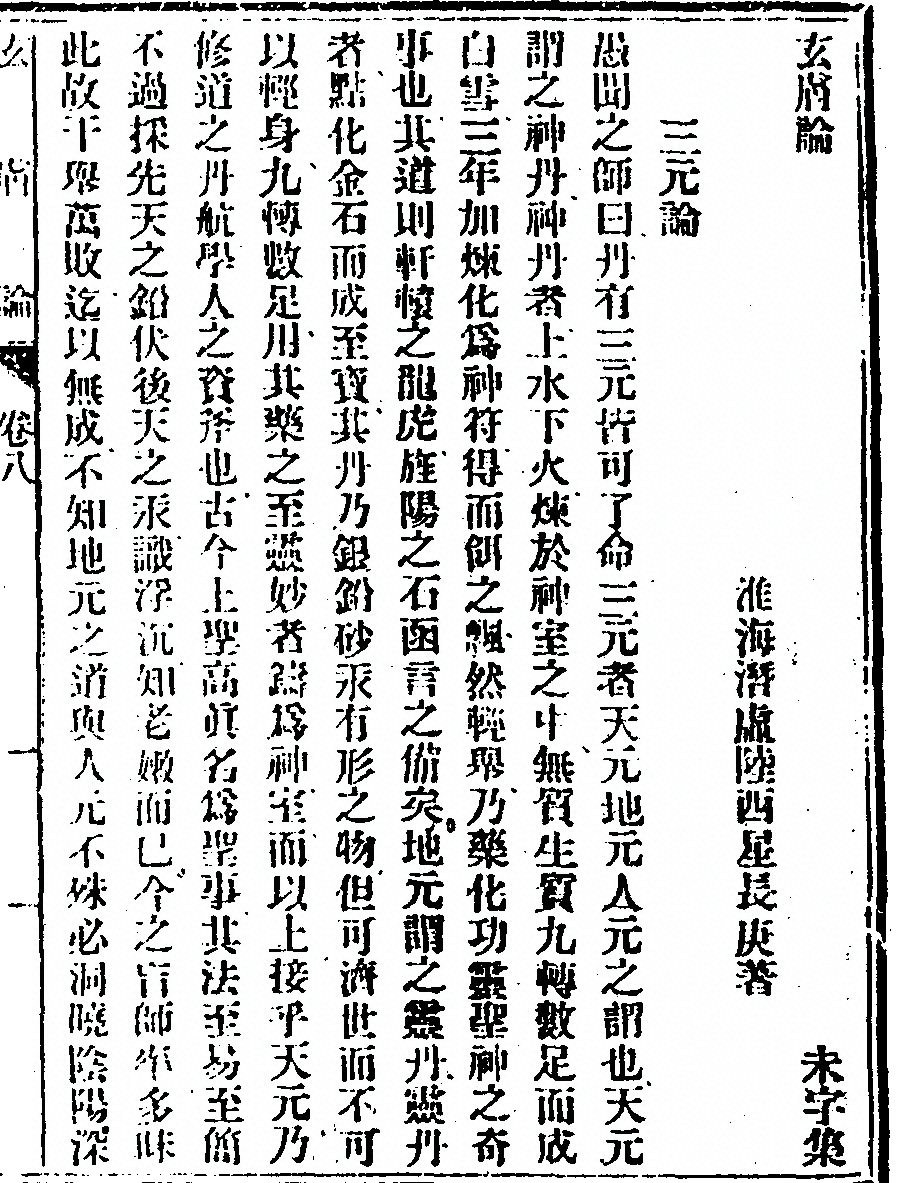 玄膚論 未字集
淮海潛虛陸西星長庚著
三元論
愚聞之師曰丹有三元皆可了命三元者天元地元人元之謂也天元
謂之神丹神丹者上水下火煉於神室之中無質生質九轉數足而成
白雪三年加煉化爲神符得而餌之飄然輕舉乃藥化功靈聖神之奇
事也其道則軒轅之龍虎旌陽之石函言之備矣地元謂之靈丹靈丹
者點化金石而成至寶其丹乃銀鉛砂汞有形之物但可濟世而不可
以輕身九轉數足用其藥之至靈妙者鑄爲神室而以上接乎天元乃
修道之丹航學人之資斧也古今上聖高眞名爲聖事其法至易至簡
不過採先天之鉛伏後天之汞識浮沉知老嫩而已今之盲師率多昧
此故千舉萬敗迄以無成不知地元之道與人元不殊必洞曉陰陽深
玄膚論 卷八 一